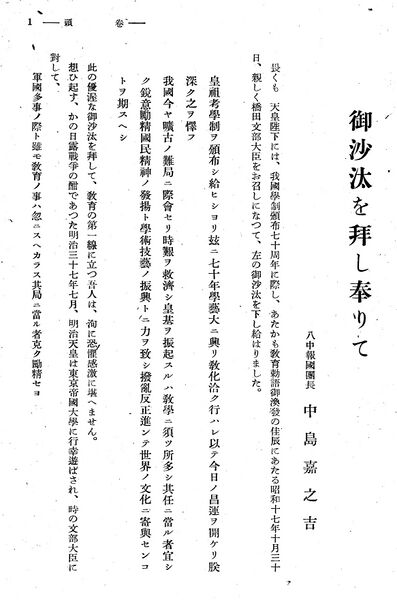 1 ― 頭 卷 ―
御沙汰を拜し奉りて
八中報國團長 中島嘉之吉
畏くも 天皇陛下には、我國學制頒布七十周年に際し、あたかも教育勅語御渙發の佳辰にあたる昭和十七年十月三十
日、親しく橋田文部大臣をお召しになつて、左の御沙汰を下し給はりました。
皇祖考學制ヲ頒布シ給ヒシヨリ玆ニ七十年學藝大ニ興リ敎化洽ク行ハレ以テ今日ノ昌運ヲ開ケリ朕
深ク之ヲ懌フ
我國今ヤ曠古ノ難局ニ際會セリ時艱ヲ救濟シ皇基ヲ振起スルハ敎學ニ須ツ所多シ其任ニ當ル者宜シ
ク鋭意勵精國民精神ノ發揚ト學術技藝ノ振興トニ力ヲ致シ撥亂反正進ンテ世界ノ文化ニ寄與センコ
トヲ期スヘシ
此の優渥な御沙汰を拜して、敎育の第一線に立つ吾人は、洵に恐懼感激に堪へません。
想ひ起す、かの日露戰爭の酣であつた明治三十七年七月、明治天皇は東京帝國大學に行幸遊ばされ、時の文部大臣に
對して、
軍國多事ノ際ト雖モ敎育ノ事ハ忽ニスヘカラス其局ニ當ル者克ク勵精セヨ